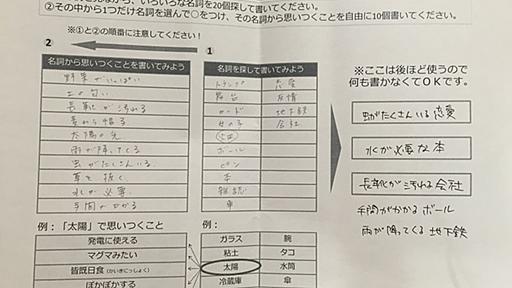 ②その中から1つだけ名詞を選んで○をつけ、その名詞から思いつくことを自由に10個書いてください。
※①と②の順番に注意してください！
②
①
名詞から思いつくことを書いてみよう
野菜がいっぱい
土の匂い
長靴が汚れる
太陽の光
雨が降ってくる
虫がたくさんいる
草を抜く
水が必要
手間がかかる
名詞を探して書いてみよう
トランプ
恋愛
舞台
友情
カード
地下鉄
女の子
会社
ボール
ピン
本
雑誌
車
※ここは後ほど使うので
何も書かなくてOKです。
虫がたくさんいる 恋愛
水が必要な 本
長靴が汚れる 会社
手間がかかる ボール
雨が降ってくる 地下鉄
例：「太陽」で思いつくこと
発電に使える
マグマみたい
皆既日食（かいきにっしょく）
ぽかぽかする
例：
ガラス
腕
粘土
タコ
太陽
水筒
冷蔵庫
傘